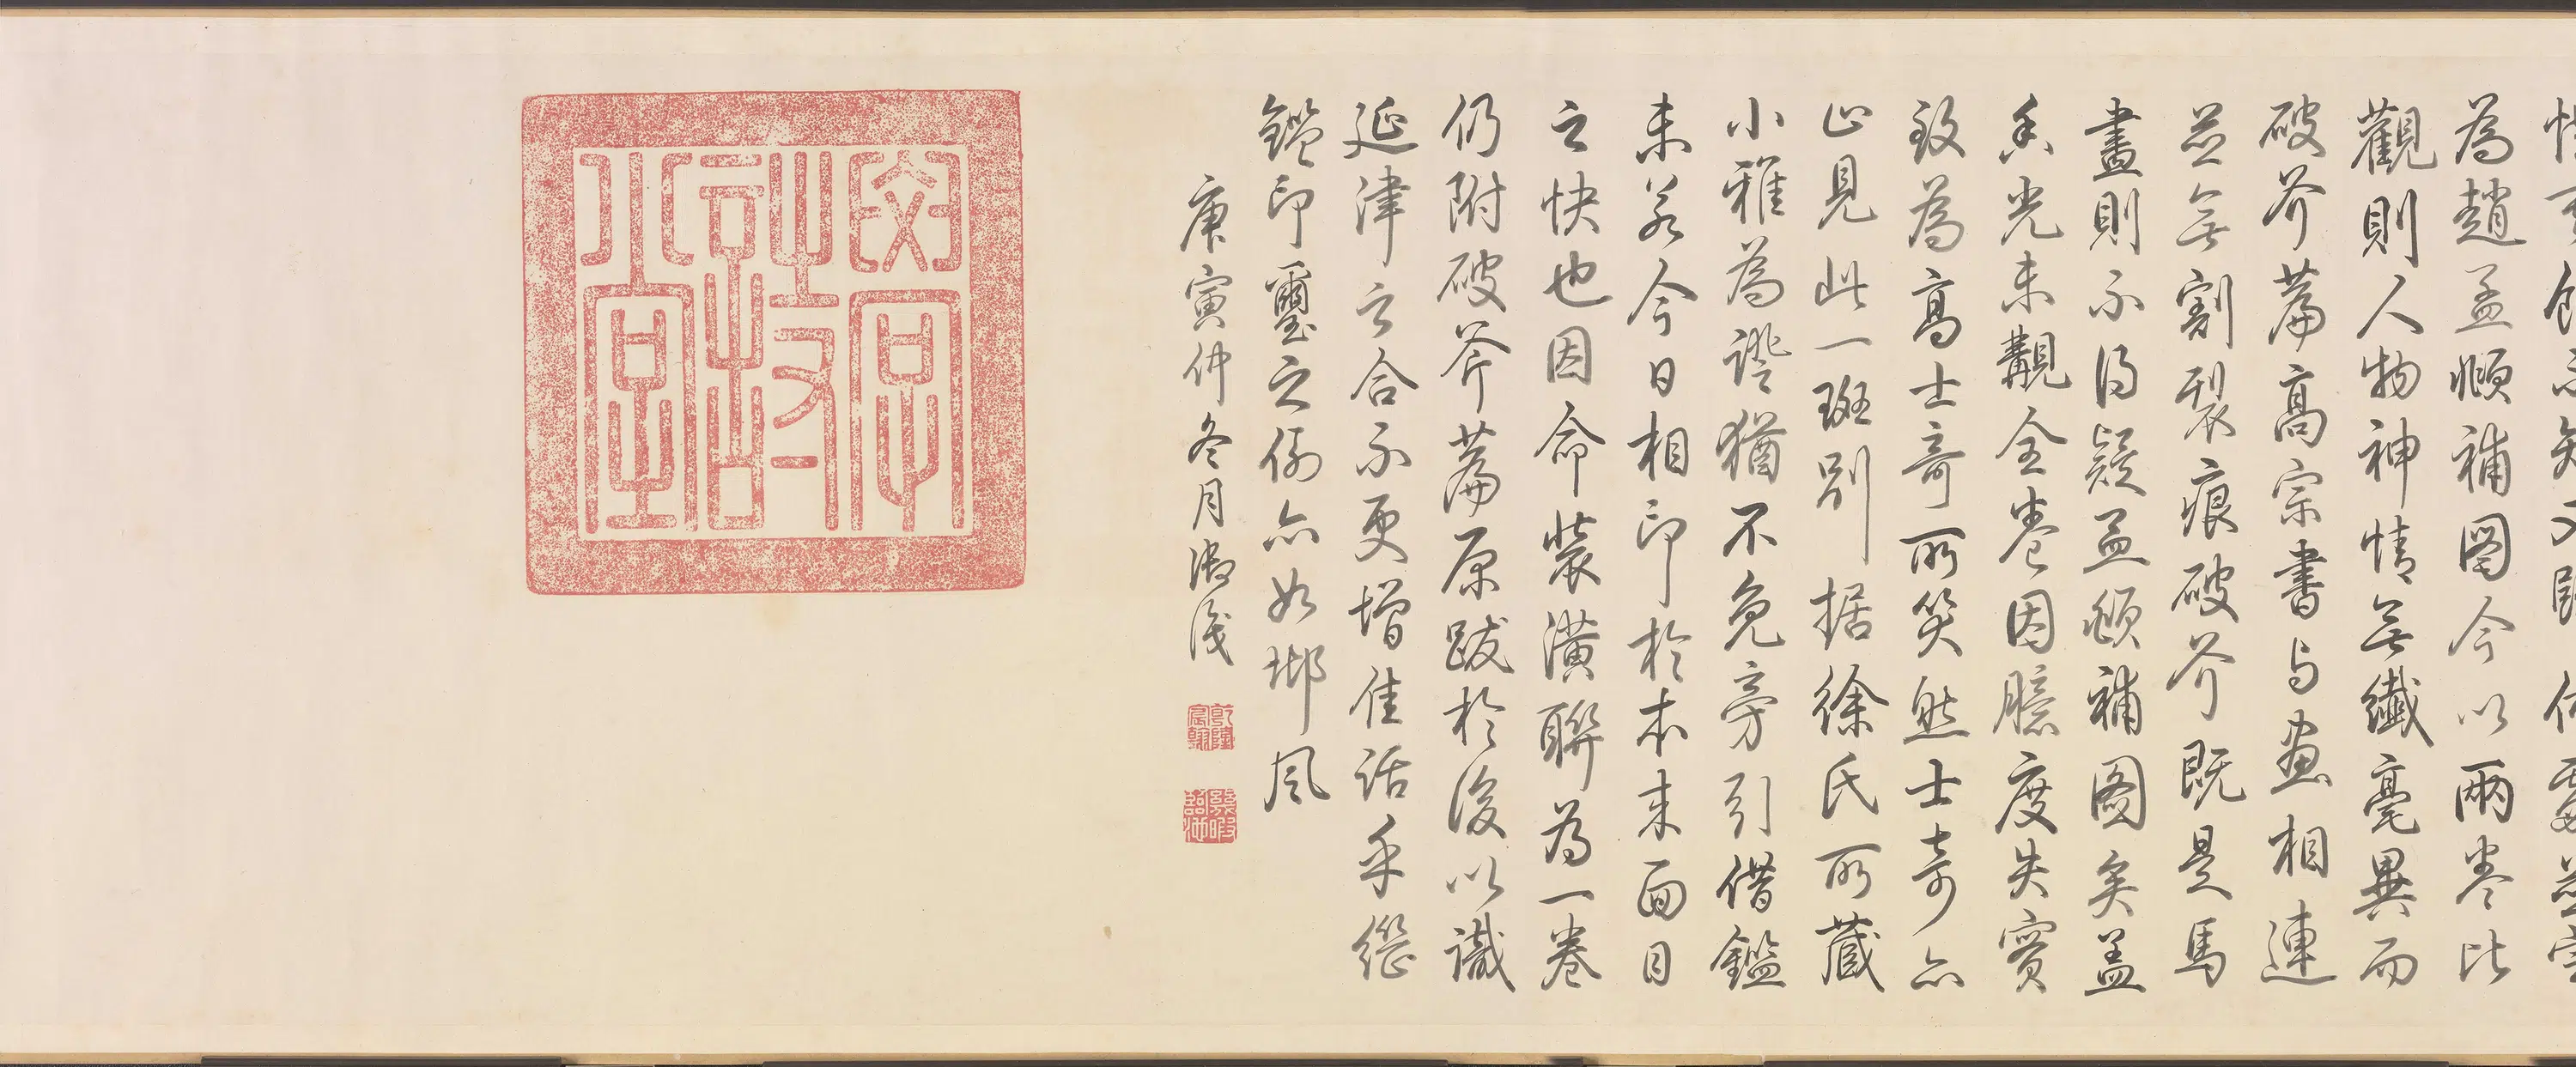 為趙孟頫補圖今以兩卷比
觀則人物神情無纖毫異而
破斧篇高宗書与畫相連
並無割裂痕破斧既是馬
畫則不得疑孟頫補圖矣蓋
香光未覯全卷因臆度失實
致為高士奇所笑然士奇亦
止見此一斑別據徐氏所藏
小雅為證猶不免旁引借鑑
未若今日相印於本來面目
之快也因命裝潢聯為一卷
仍附破斧篇原跋於後以識
延津之合不更增佳話乎繼
鑑印璽之例亦如邶風
庚寅仲冬月御識
乾隆宸翰
幾暇臨池